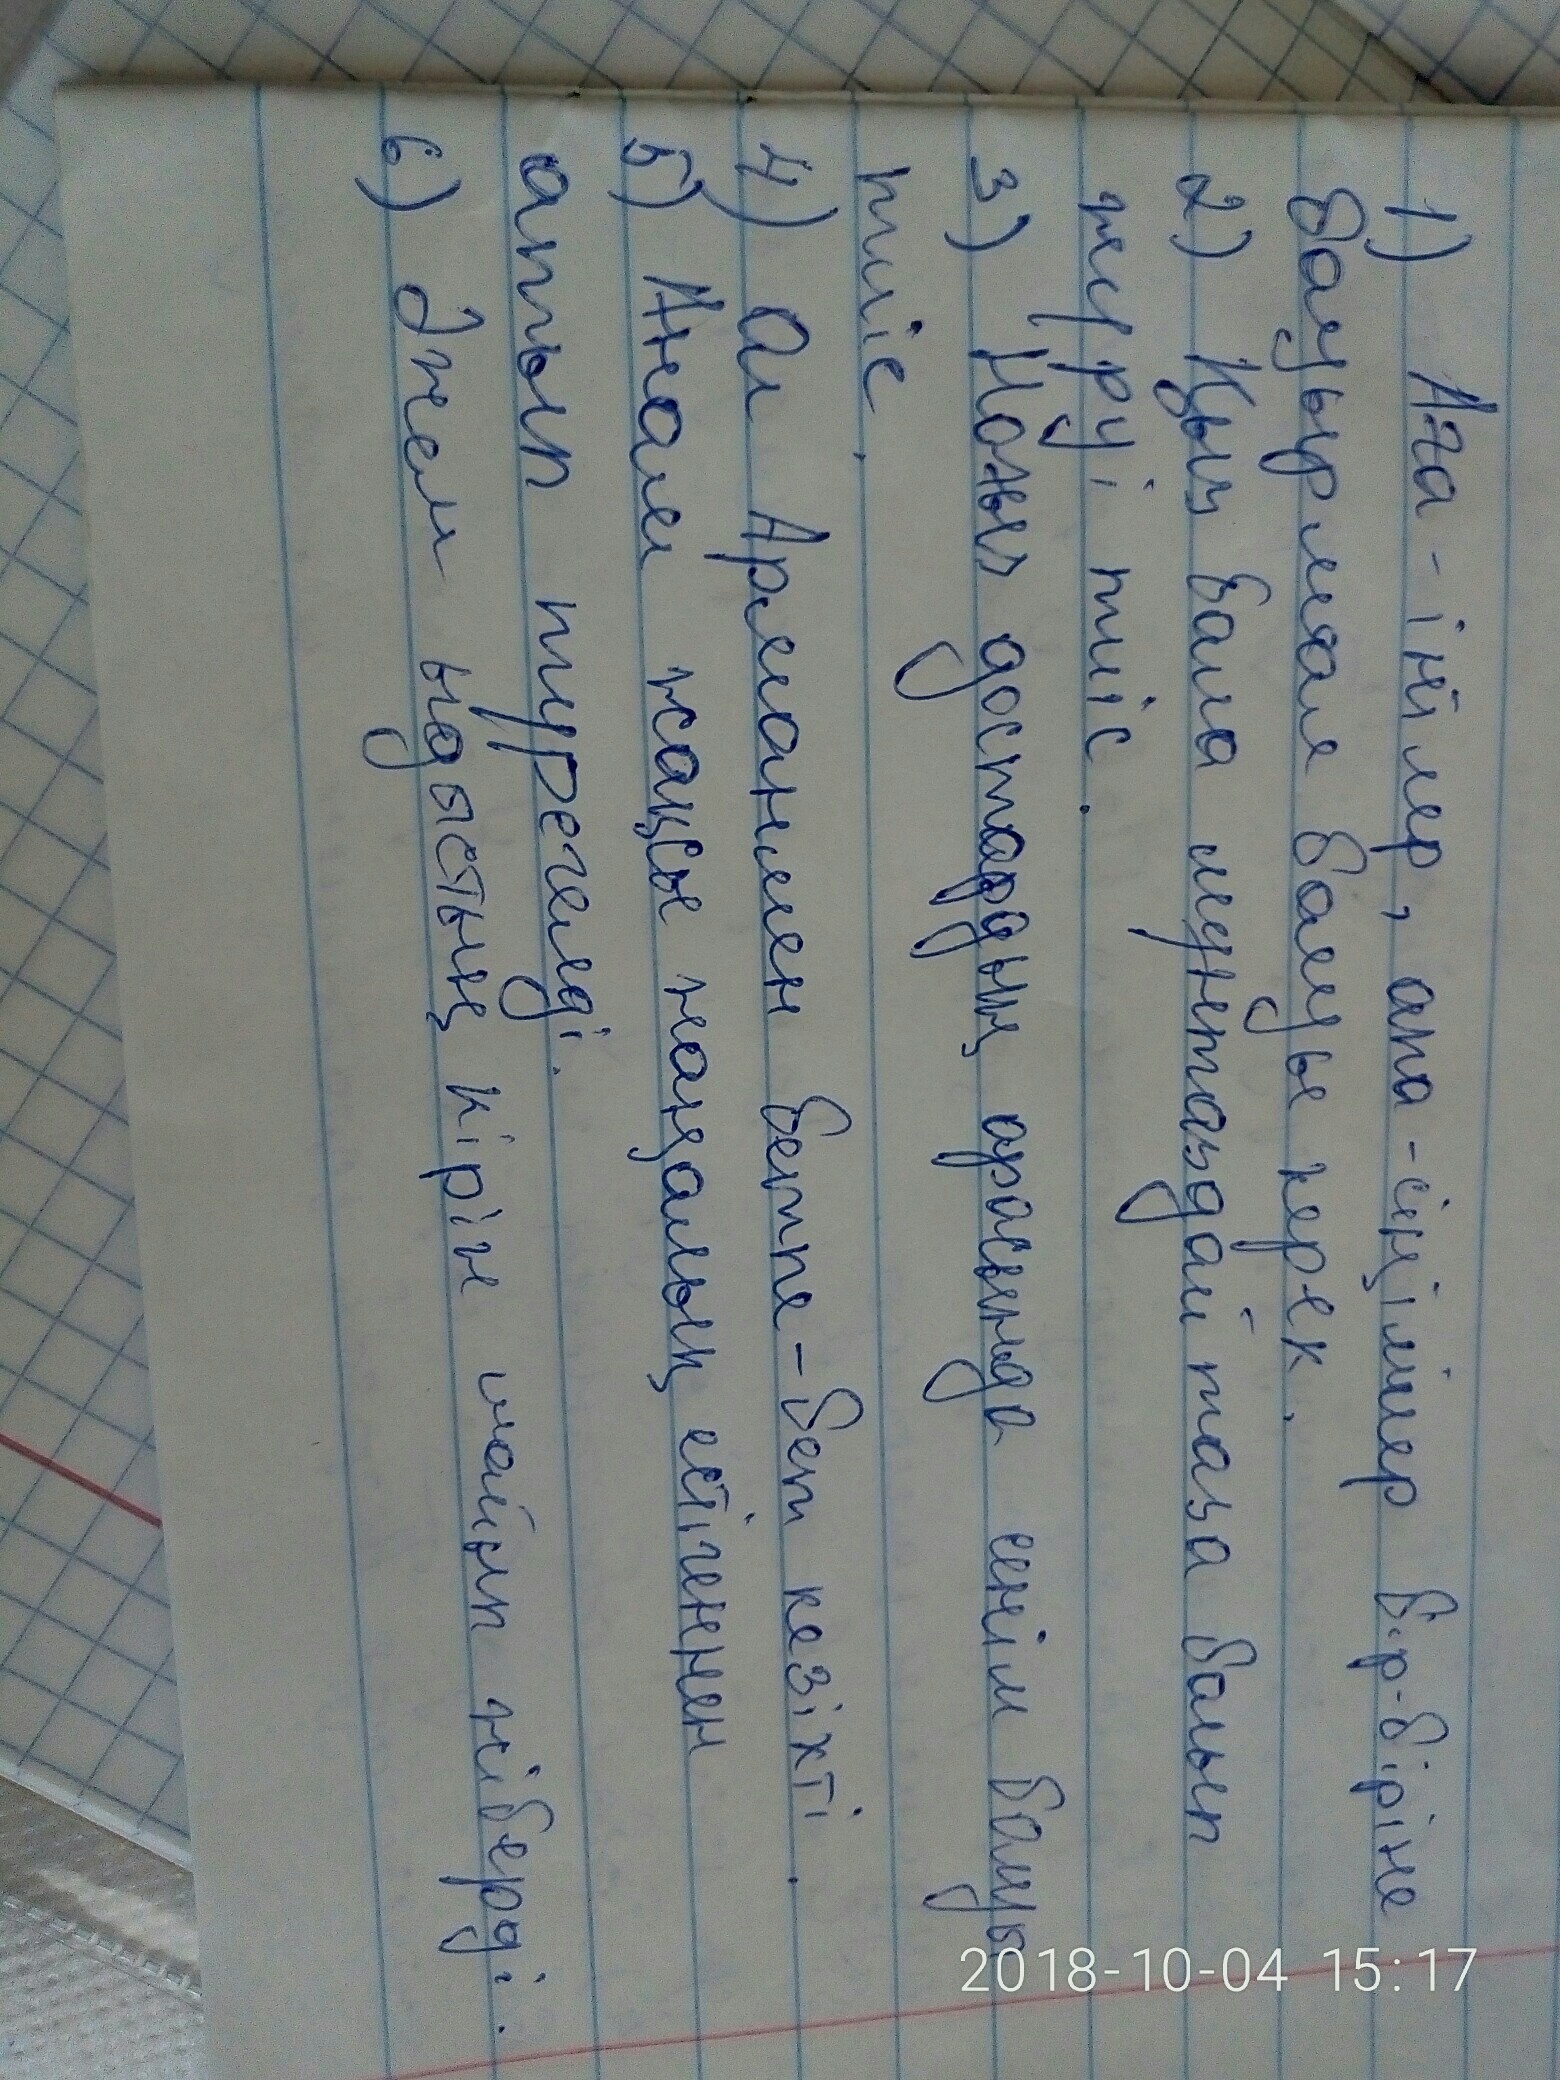 1) Аға-інілер, апа-сіңілілер бір-біріне
бауырмал болуы керек.
2) Қыз бала мұнтаздай таза болып
жүруі тиіс.
3) Нағыз достардың арасында сенім болуы
тиіс.
4) Ол Арманмен бетпе-бет кезікті.
5) Анам жақсы жаңалық естігеннен
атып түрегелді.
6) Әжем ыдыстың кірін шайып жіберді.
2018-10-04 15:17